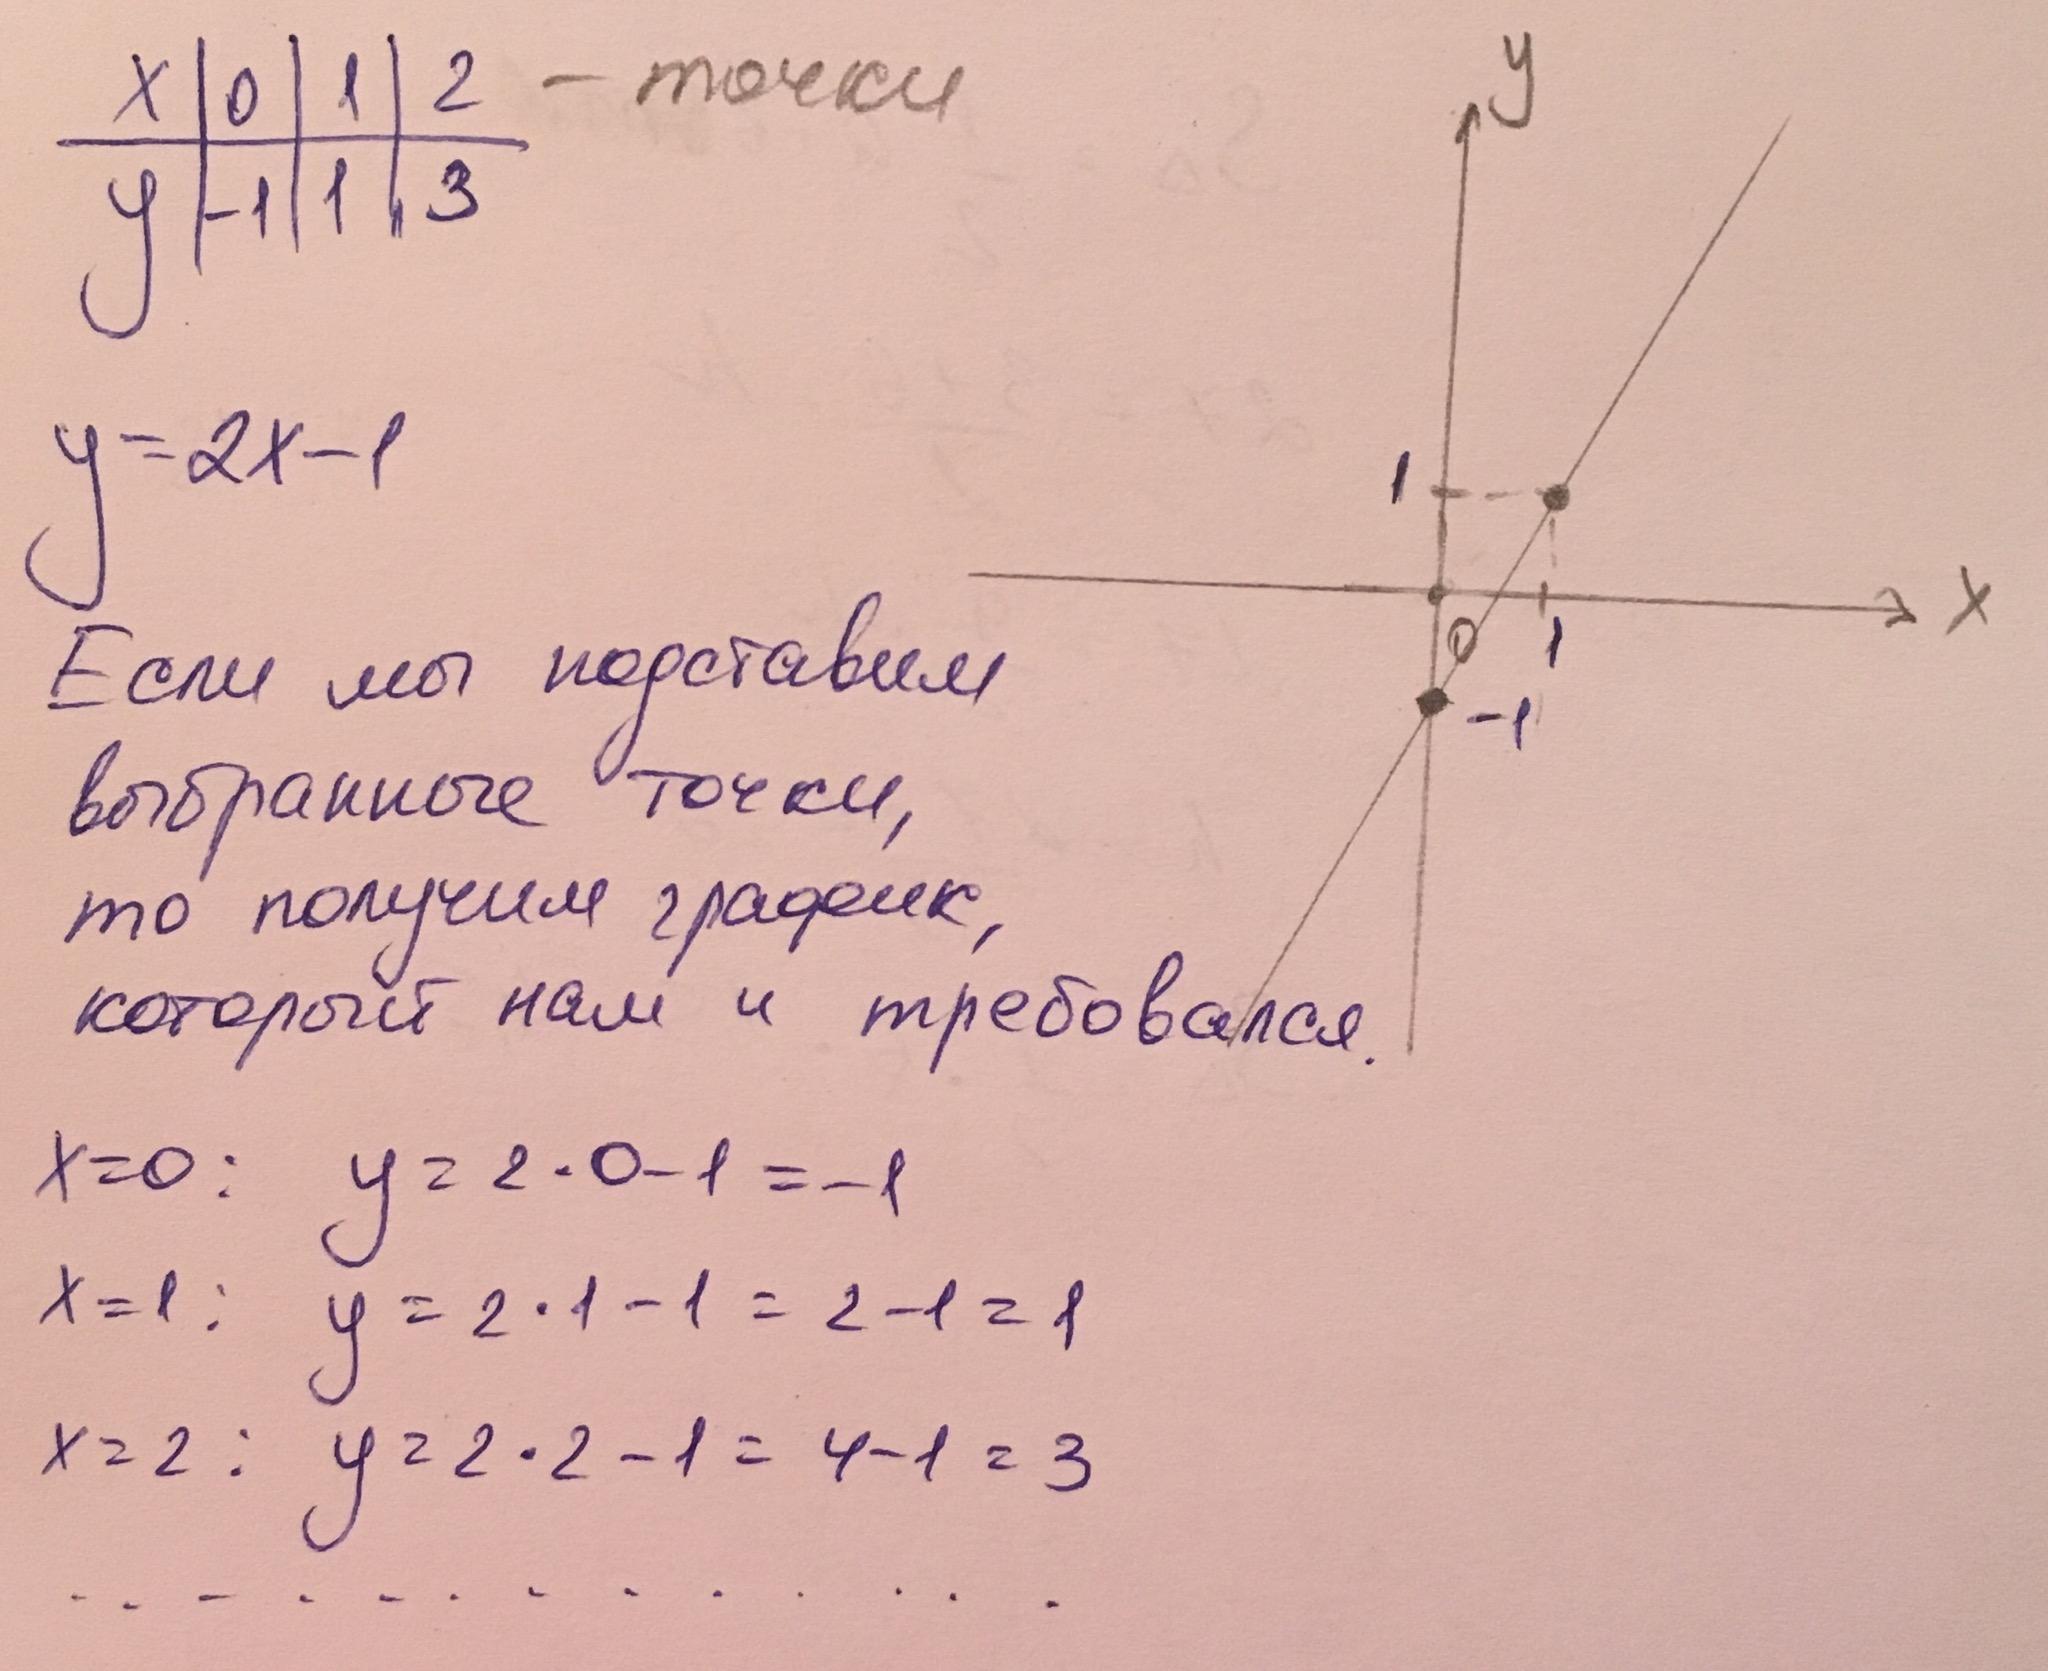 x 0 1 2 - точки
y -1 1 3
y=2x-1
Если мы подставим
выбранные точки,
то получим график,
который нам и требовался.
x=0: y=2·0-1=-1
x=1: y=2·1-1=2-1=1
x=2: y=2·2-1=4-1=3
y
1
0
1
x
-1